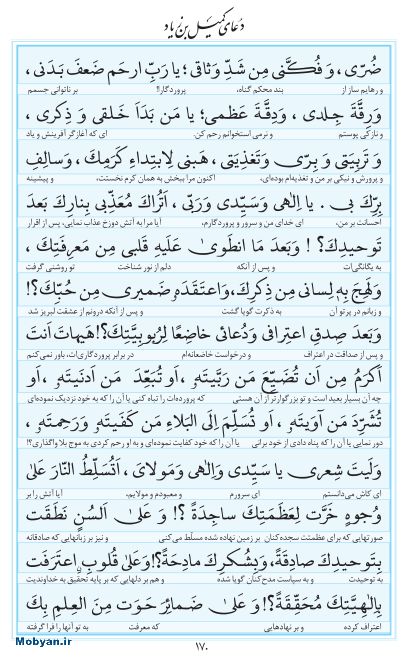 دعای کمیل بن زیاد
ضُرّی، وَ فُكَّنی مِن شَدِّ وَثاقی؛ یا رَبِّ ارحَم ضَعفَ بَدَنی،
و رهایم ساز از بند محکم گناه، پروردگارا! بر ناتوانی جسمم
وَرِقَّةَ جِلدی، وَدِقَّةَ عَظمی؛ یا مَن بَدَاَ خَلقی وَ ذِكری،
و نازکی پوستم و نرمی استخوانم رحم کن. ای که آغازگر آفرینش و یاد
وَ تَربِیَتی وَ بِرّی وَتَغذِیَتی، هَبنی لِابتِداءِ كَرَمِكَ، وَسالِفِ
و پرورش و نیکی بر من و تغذیه‌ام بوده‌ای، اکنون مرا ببخش به همان کرم نخستت، و پیشینه
بِرِّكَ بی. یا اِلٰهی وَسَیِّدی وَرَبّی، اَتُراكَ مُعَذِّبی بِنارِكَ بَعدَ
احسانت بر من، ای خدای من و سرور و پروردگارم، آیا مرا به آتش دوزخ عذاب نمایی، پس از اقرار
تَوحیدِكَ؟! وَبَعدَ مَا انطَوىٰ عَلَیهِ قَلبی مِن مَعرِفَتِكَ،
به یگانگی‌ات و پس از آنکه دلم از نور شناخت تو روشنی گرفت
وَلَهِجَ بِهٖ لِسانی مِن ذِكرِكَ، وَاعتَقَدَهٗ ضَمیری مِن حُبِّكَ؟!
و زبانم در پرتو آن به ذکرت گویا گشت و پس از آنکه درونم از عشقت لبریز شد
وَبَعدَ صِدقِ اعتِرافی وَدُعائی خاضِعًا لِرُبوبِیَّتِكَ؟! هَیهاتَ اَنتَ
و پس از صداقت در اعتراف و درخواست خاضعانه‌ام در برابر پروردگاری‌ات، باور نمی‌کنم
اَكرَمُ مِن اَن تُضَیِّعَ مَن رَبَّیتَهٗ، اَو تُبَعِّدَ مَن اَدنَیتَهٗ، اَو
چه آن بسیار بعید است و تو بزرگوارتر از آن هستی که پرورده‌ات را تباه کنی یا آن را که به خود نزدیک نموده‌ای
تُشَرِّدَ مَن آوَیتَهٗ، اَو تُسَلِّمَ اِلَی البَلاءِ مَن كَفَیتَهٗ وَرَحِمتَهٗ،
دور نمایی یا آن را که پناه دادی از خود برانی یا آن را که خود کفایت نموده‌ای و به او رحم کردی به موج بلا واگذاری؟!
وَلَیتَ شِعری یا سَیِّدی وَاِلٰهی وَمَولایَ، اَتُسَلِّطُ النّارَ عَلىٰ
ای کاش می‌دانستم ای سرورم و معبودم و مولایم، آیا آتش را بر
وُجوهٍ خَرَّت لِعَظَمَتِكَ ساجِدَةً؟! وَ عَلىٰ اَلسُنٍ نَطَقَت
صورتهایی که برای عظمتت سجده‌کنان بر زمین نهاده شده مسلّط می‌کنی و نیز بر زبانهایی که صادقانه
بِتَوحیدِكَ صادِقَةً، وَبِشُكرِكَ مادِحَةً؟! وَعَلىٰ قُلوبٍ اعتَرَفَت
به توحیدت و به سپاست مدح‌کنان گویا شده و هم بر دلهایی که بر پایه تحقیق به خداوندیت
بِاِلٰهِیَّتِكَ مُحَقِّقَةً؟! وَ عَلىٰ ضَمائِرَ حَوَت مِنَ العِلمِ بِكَ
اعتراف کرده و بر نهادهایی که معرفت به تو آنها را فرا گرفته
۱۷۰
Mobyan.ir